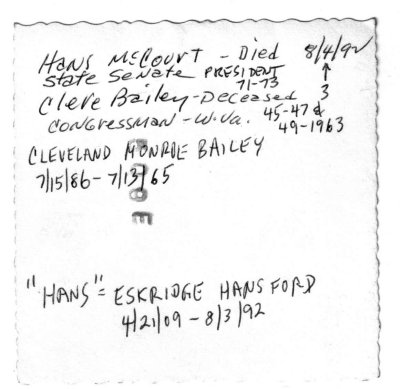 HANS McCOURT - Died 8/4/92
State Senate PRESIDENT ↑
71-73 3
Cleve Bailey - Deceased
CONGRESSMAN - W.Va. 45-47 &
49-1963
CLEVELAND MONROE BAILEY
7/15/86 - 7/13/65
"HANS" = ESKRIDGE HANSFORD
4/21/09 - 8/3/92